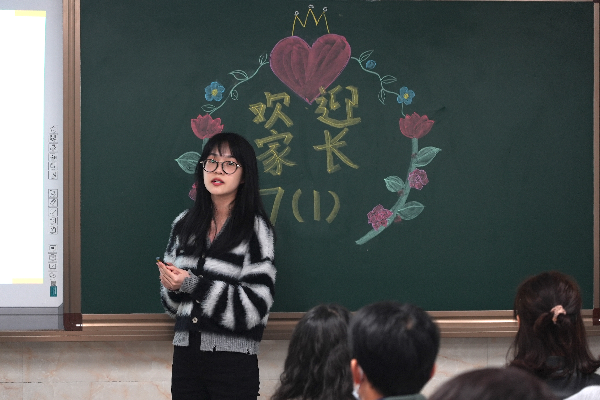 欢迎
家长
7(1)